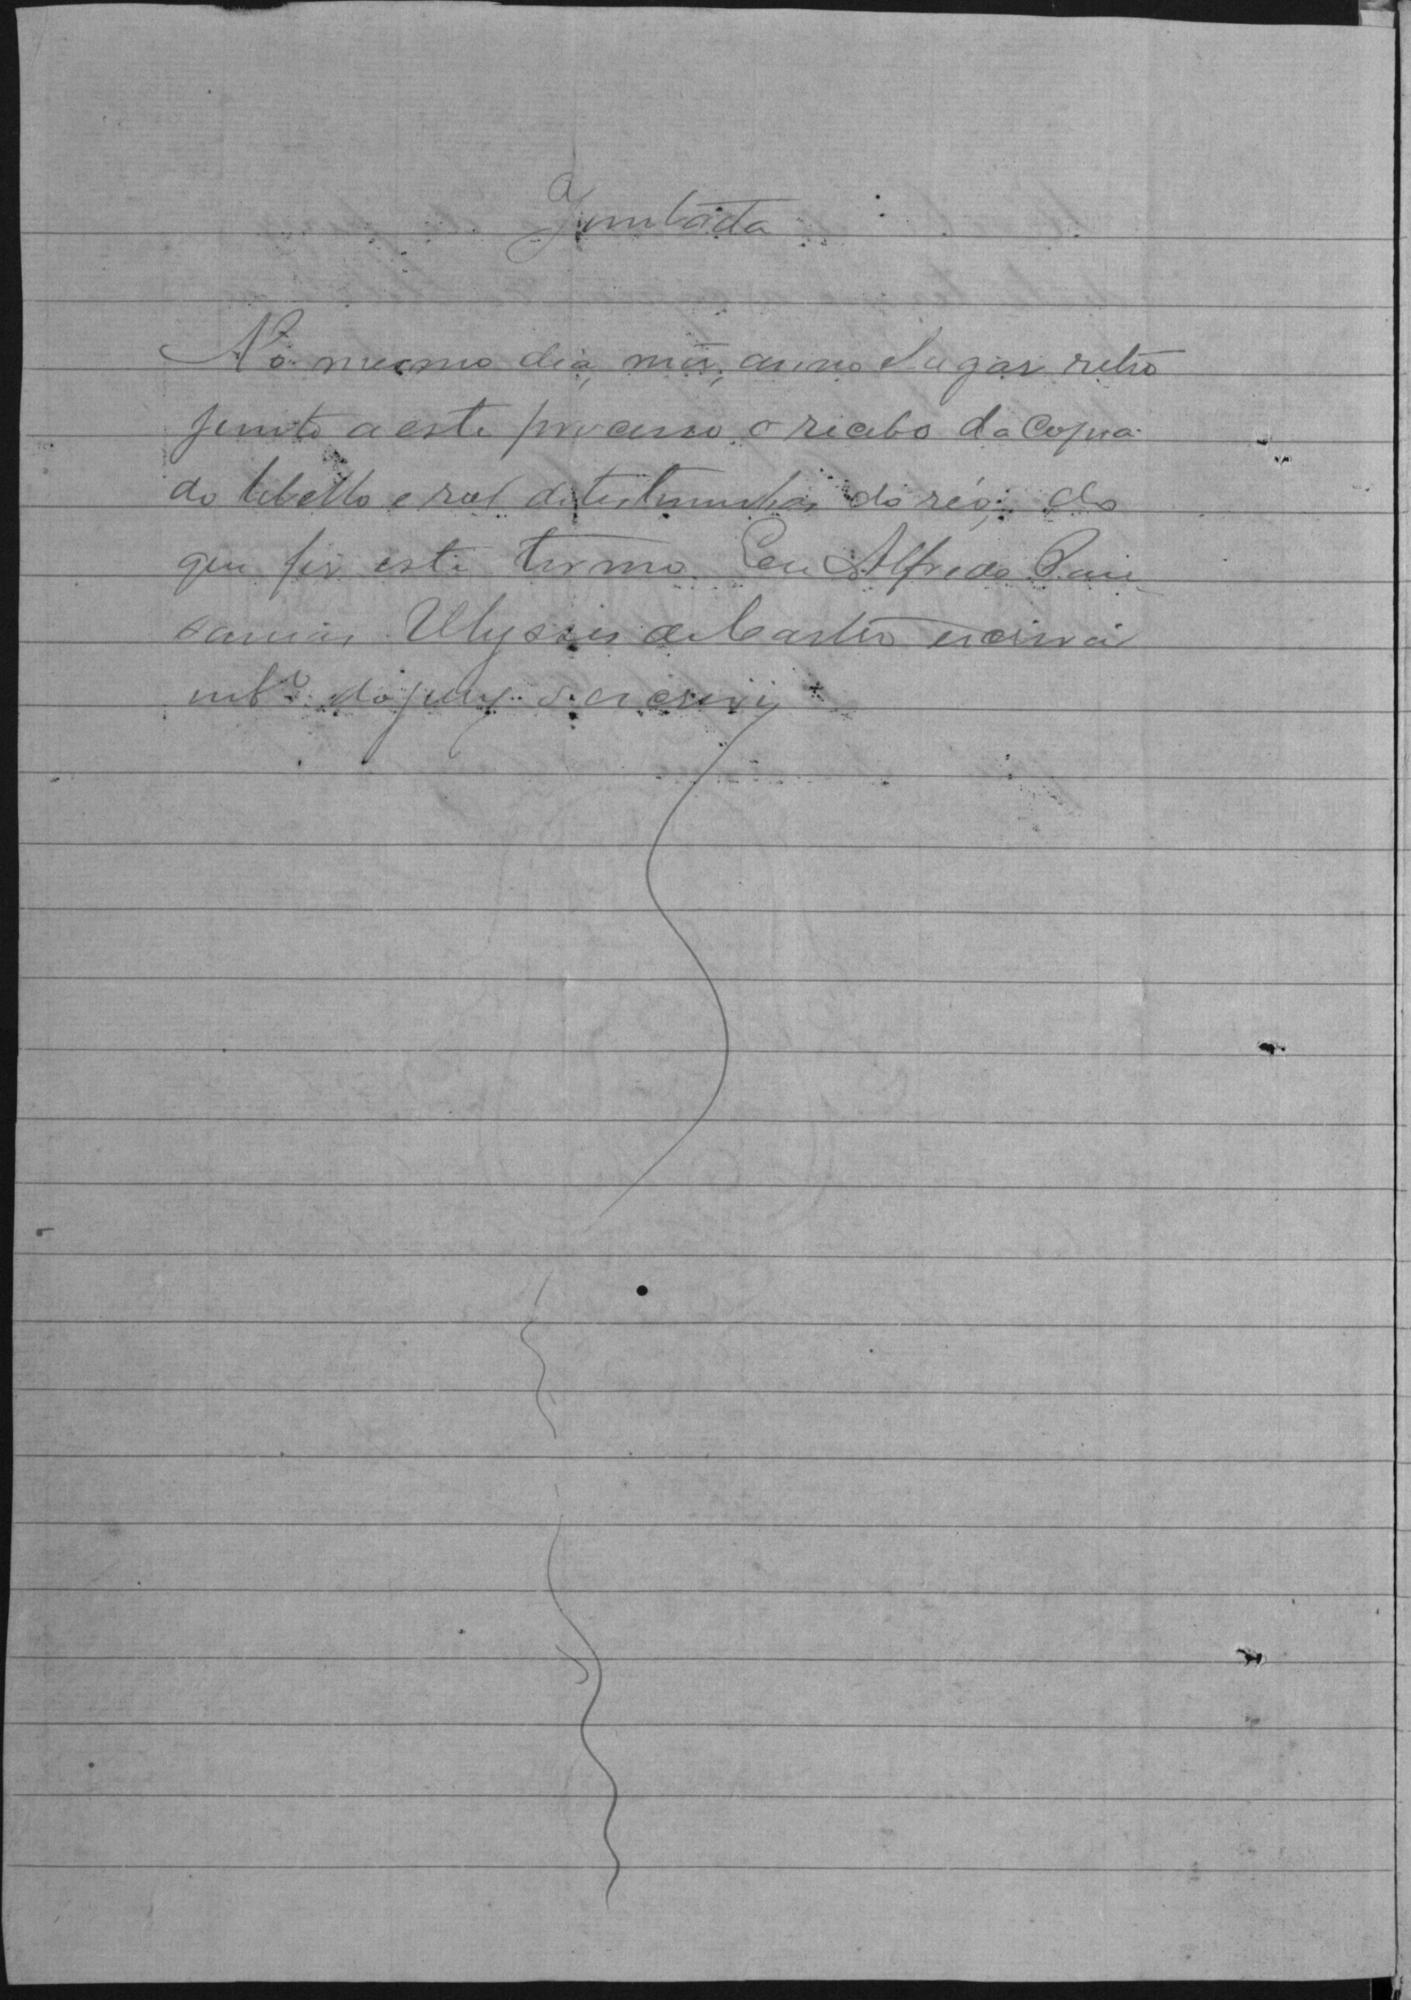 Juntada
No mesmo dia, mês, anno e lugar retro
junto a este processo o recibo da copia
do libello e rol de testemunhas do réo; do
que fiz este termo. Eu Alfredo
Ulysses de Castro escrivão
do jury o escrevi